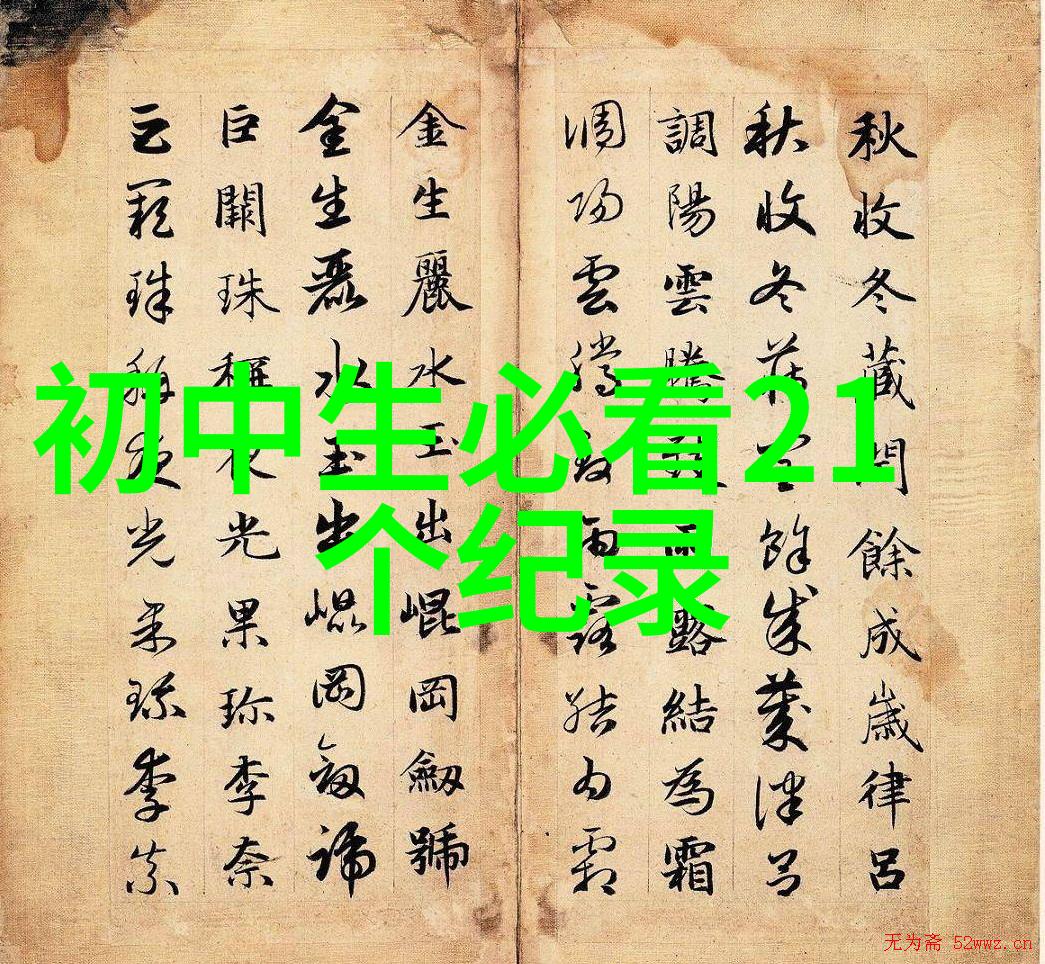 初中生必看21
个纪录
秋收冬藏閏餘成歲律呂
秋收冬藏閏餘成歲律呂
調陽雲騰致雨露結為霜
調陽雲騰致雨露結為霜
金生麗水玉出崐岡劒號
金生麗水玉出崐岡劒號
巨闕珠稱夜光果珍李柰
巨闕珠稱夜光果珍李柰
无为斋 52wwz.cn